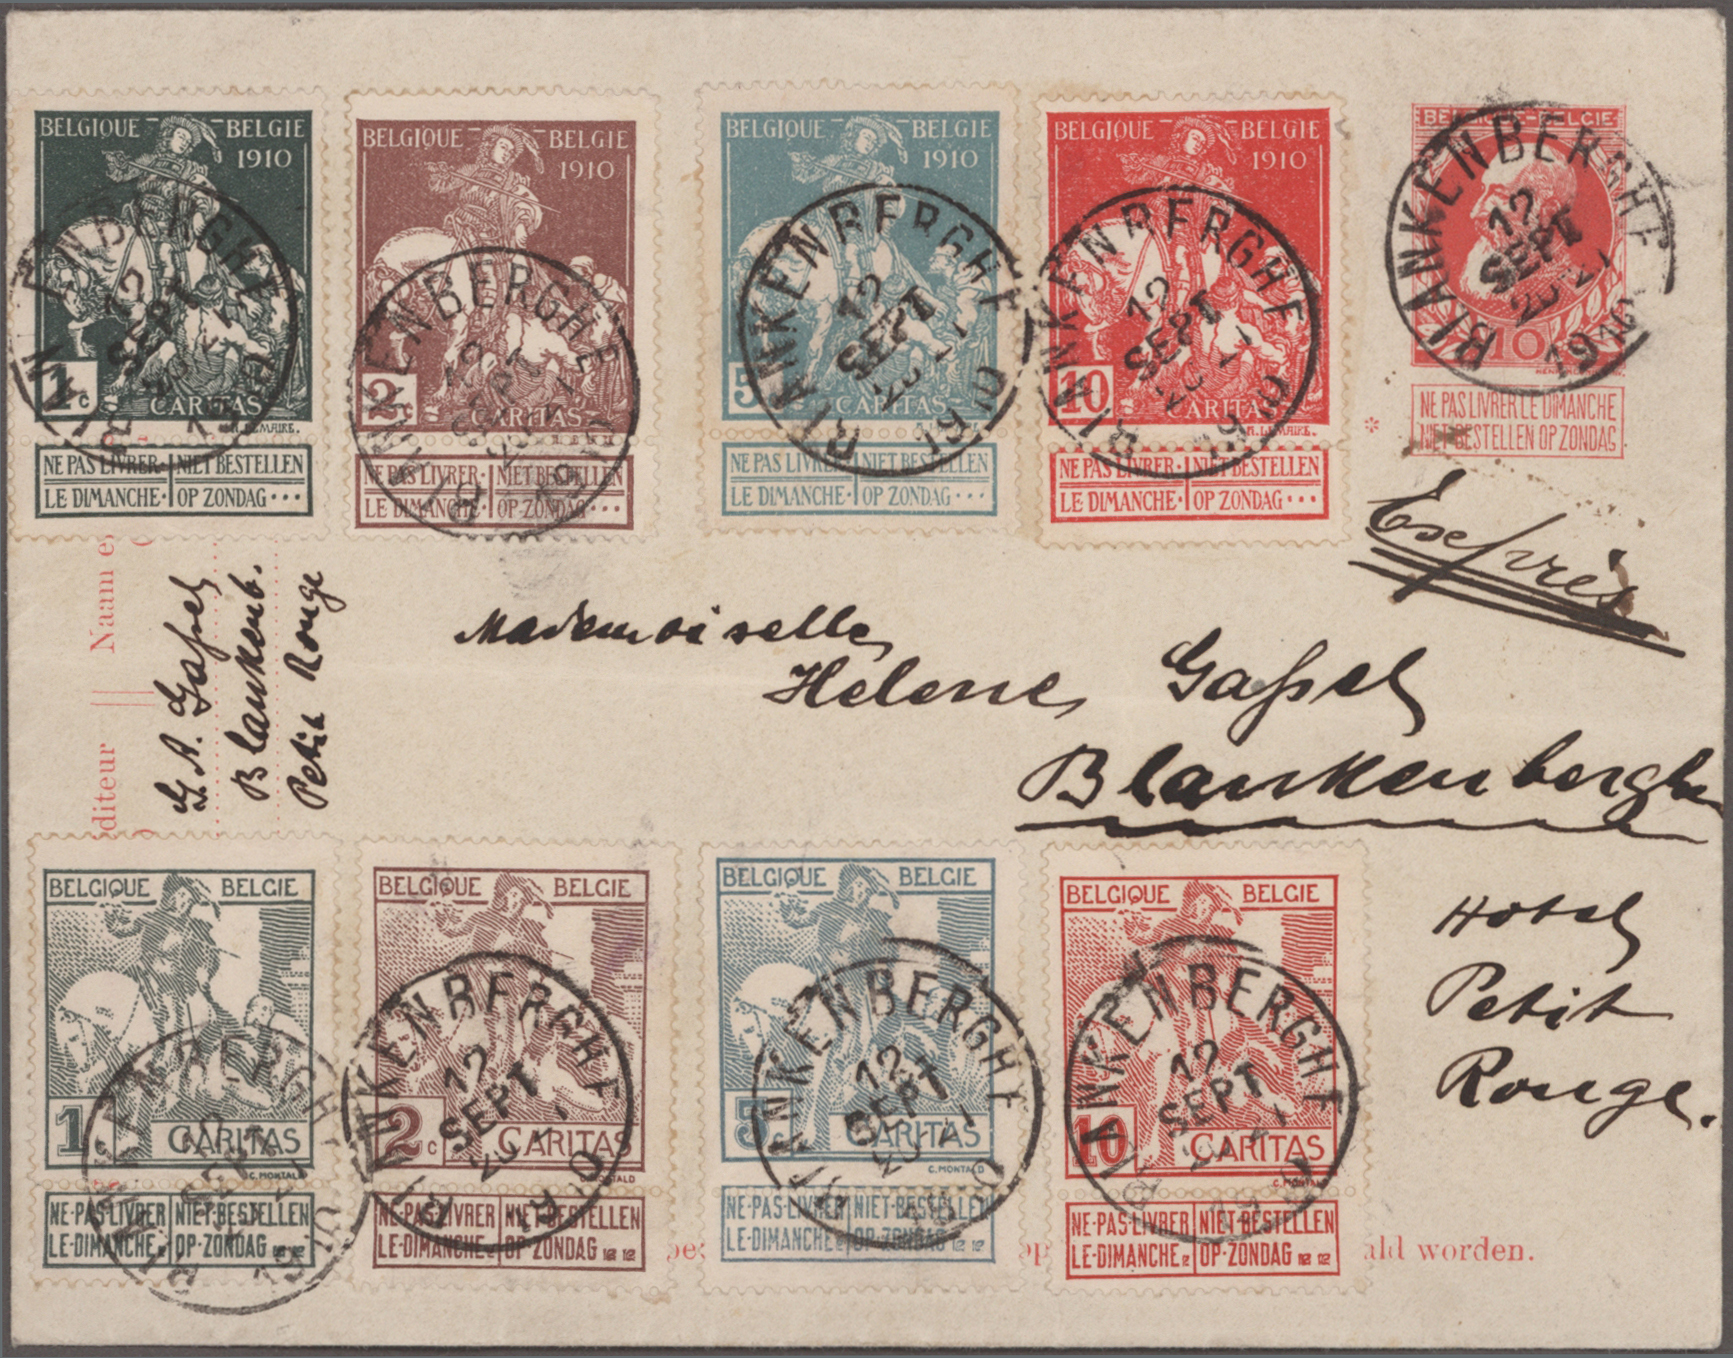 BELGIQUE - BELGIE
1910
1c
CARITAS
H. LEMAIRE.
NE PAS LIVRER NIET BESTELLEN
LE DIMANCHE OP ZONDAG
BELGIQUE - BELGIE
1910
2c
CARITAS
NE PAS LIVRER NIET BESTELLEN
LE DIMANCHE OP ZONDAG
BELGIQUE - BELGIE
1910
5
CARITAS
NE PAS LIVRER NIET BESTELLEN
LE DIMANCHE OP ZONDAG
BELGIQUE - BELGIE
1910
10
CARITAS
H. LEMAIRE.
NE PAS LIVRER NIET BESTELLEN
LE DIMANCHE OP ZONDAG
BELGIQUE-BELGIE
10
NE PAS LIVRER LE DIMANCHE
NIET BESTELLEN OP ZONDAG.
BLANKENBERGHE
12
SEPT
1910
Exprès
Mademoiselle
Helene Gassel
Blankenberghe
Hotel
Petit
Rouge.
Naam e
diteur
G. A. Gassel
Blankenb.
Petit Rouge
BELGIQUE BELGIE
1
CARITAS
C. MONTALD
NE·PAS·LIVRER NIET·BESTELLEN
LE·DIMANCHE OP·ZONDAG
BELGIQUE BELGIE
2c
CARITAS
C. MONTALD
NE·PAS·LIVRER NIET·BESTELLEN
LE·DIMANCHE OP·ZONDAG
BELGIQUE BELGIE
5c
CARITAS
C. MONTALD
NE·PAS·LIVRER NIET·BESTELLEN
LE·DIMANCHE OP·ZONDAG
BELGIQUE BELGIE
10
CARITAS
C. MONTALD
NE·PAS·LIVRER NIET·BESTELLEN
LE·DIMANCHE OP·ZONDAG
ald worden.